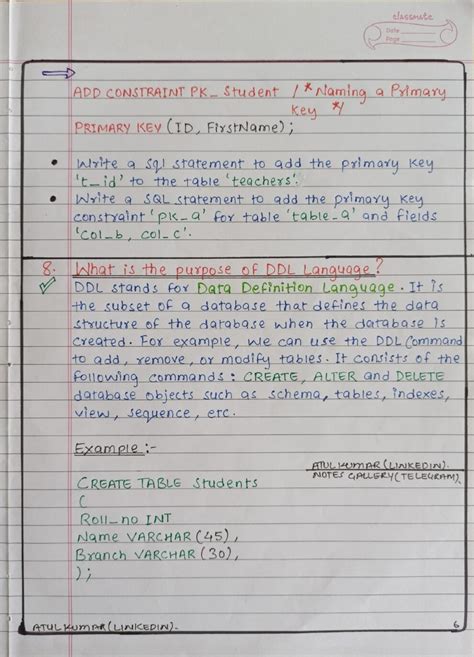 classmate
Date
Page
ADD CONSTRAINT PK_ Student /* Naming a Primary
Key */
PRIMARY KEY (ID, FirstName);
• Write a Sql statement to add the primary Key
't_id' to the table 'teachers'.
• Write a SQL statement to add the primary Key
constraint 'pk_a' for table 'table_a' and fields
'Col_b, col_c'.
8. What is the purpose of DDL Language?
DDL stands for Data Definition Language. It is
the subset of a database that defines the data
structure of the database when the database is
created. For example, we can use the DDL Command
to add, remove, or modify tables. It consists of the
following commands : CREATE, ALTER and DELETE
database objects such as schema, tables, indexes,
view, sequence, etc.
Example :-
ATUL KUMAR (LINKEDIN).
NOTES GALLERY (TELEGRAM)
CREATE TABLE Students
(
Roll_no INT
Name VARCHAR (45),
Branch VARCHAR (30),
);
ATUL KUMAR (LINKEDIN).
6